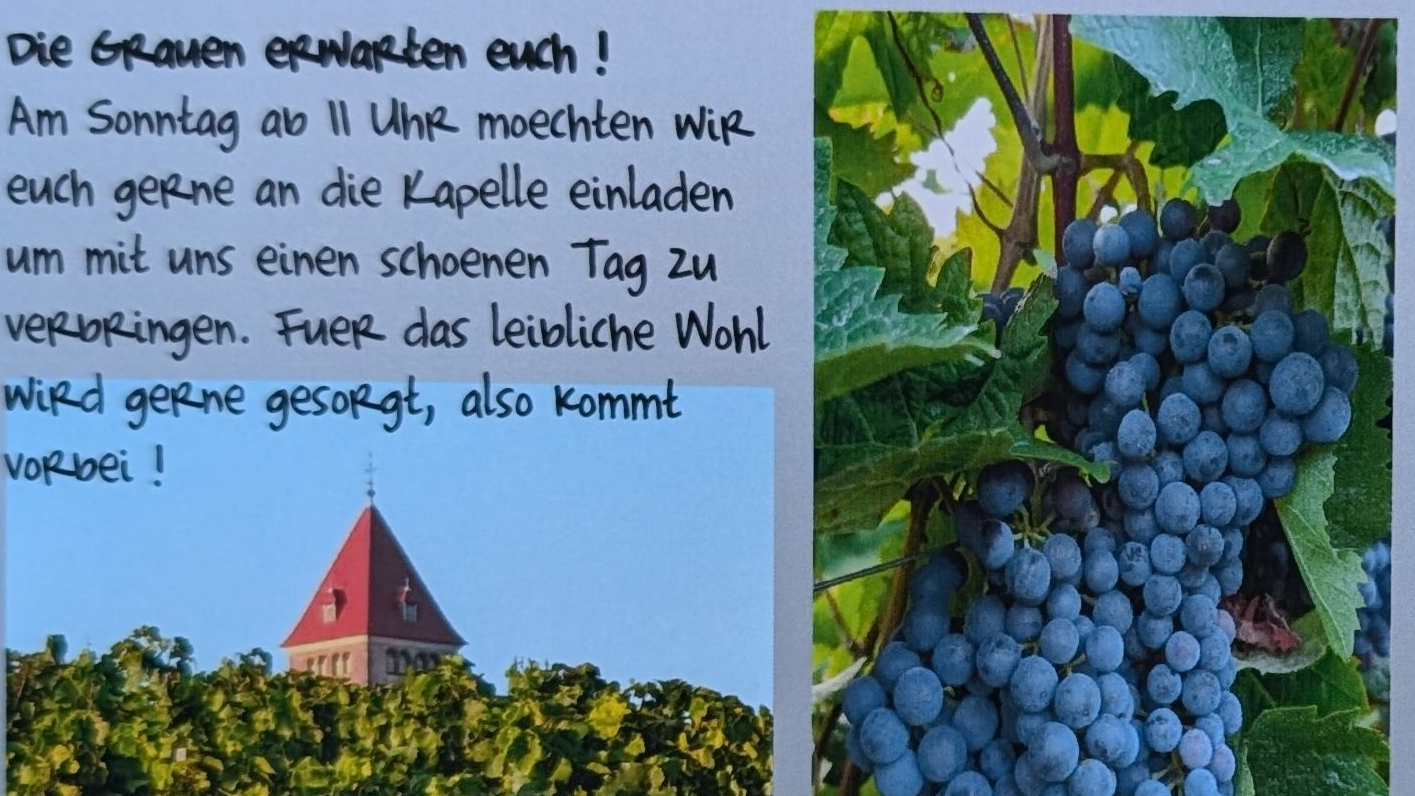 Die Grauen erwarten euch !
Am Sonntag ab 11 Uhr moechten wir
euch gerne an die Kapelle einladen
um mit uns einen schoenen Tag zu
verbringen. Fuer das leibliche Wohl
wird gerne gesorgt, also kommt
vorbei !